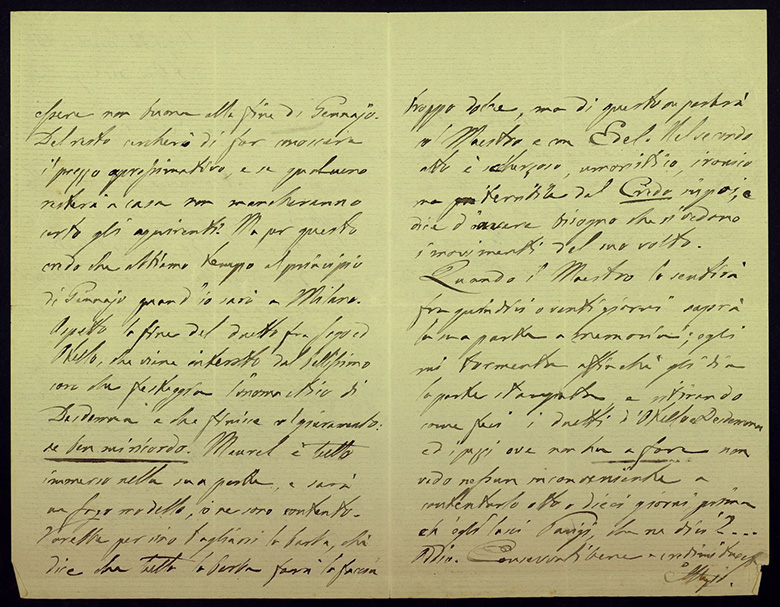 essere non buona alla fine di Gennajo.
Del resto cercherò di far conoscere
il prezzo approssimativo, e se qualcuno
resterà a casa non mancheranno
certo gli aspiranti. Ma per questo
credo che abbiamo tempo al principio
di Gennajo quand'io sarò a Milano.
Aspetto la fine del duetto fra Jago ed
Otello, che viene interrotto dal bellissimo
coro che festeggia l'onomastico di
Desdemona e che finisce col giuramento:
se ben mi ricordo. Maurel è tutto
immerso nella sua parte, e sarà
un Jago modello, io ne sono contento.
Vorrebbe persino tagliarsi la barba, chè
dice che tutta la barba farà la faccia
troppo dolce, ma di questo ne parlerà
col Maestro e con Edel. Nel secondo
atto è scherzoso, umoristico, ironico
ma terribile dal Credo in poi, e
dice d'avere bisogno che si vedano
i movimenti del suo volto.
Quando il Maestro lo sentirà
fra quindici o venti giorni saprà
la sua parte a memoria; egli
mi tormenta affinchè gli dia
la parte stampata e ritirando
come feci i duetti d'Otello e Desdemona
ed i pezzi ove non ha a fare non
vedo nessun inconveniente a
contentarlo otto o dieci giorni prima
ch'egli lasci Parigi, che ne dici? ....
Addio. Conservati bene e credimi